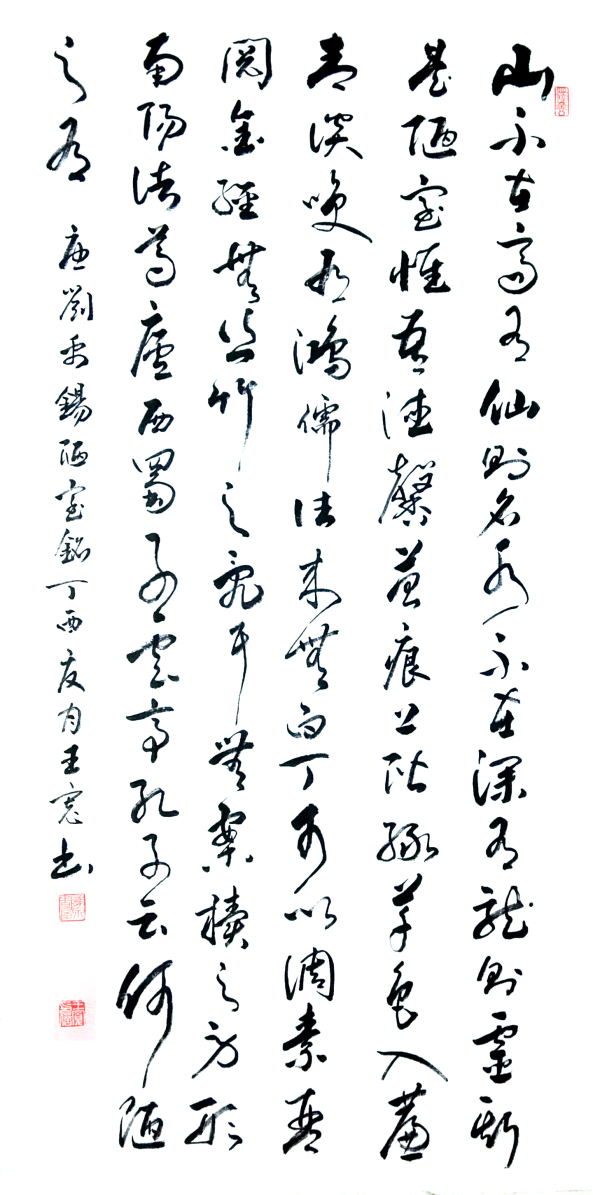 山不在高有仙則名水不在深有龍則靈斯
是陋室惟吾德馨苔痕上階綠草色入簾
青談笑有鴻儒往來無白丁可以調素琴
閱金經無絲竹之亂耳無案牘之勞形
南陽諸葛廬西蜀子雲亭孔子云何陋
之有 唐劉禹錫陋室銘丁酉夏月王書